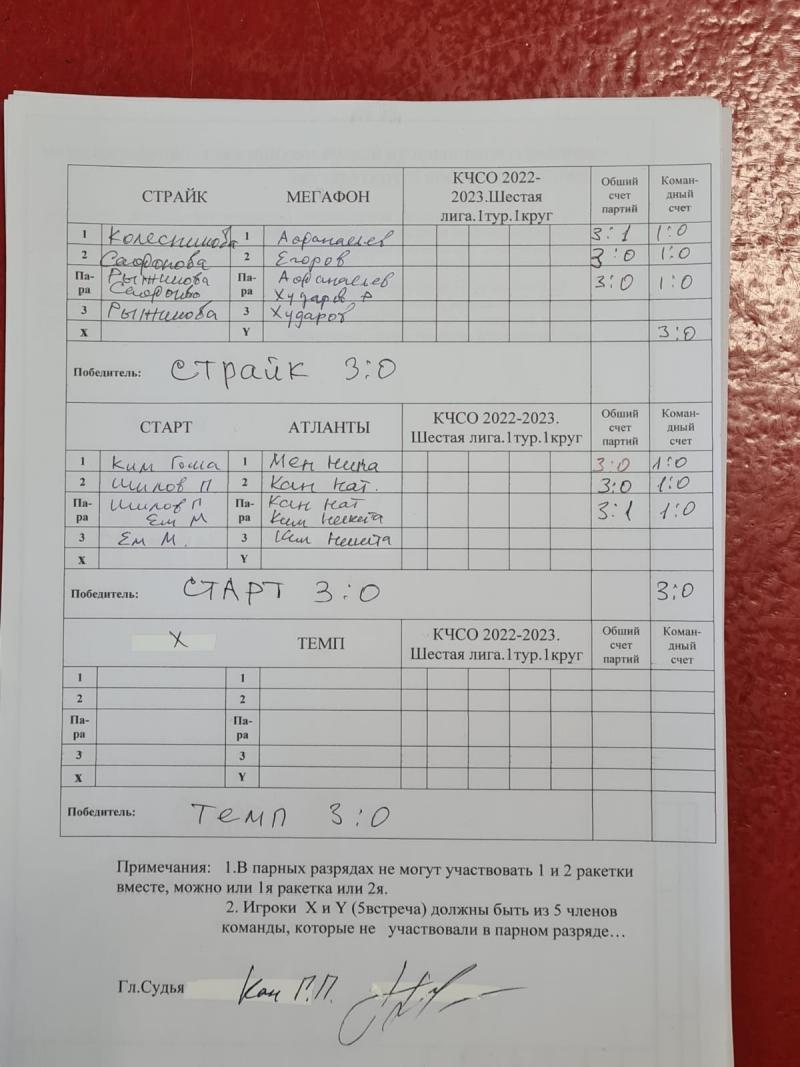 СТРАЙК МЕГАФОН КЧСО 2022-2023.Шестая лига.1тур.1круг Обший счет партий Коман-дный счет
1 Колесникова 1 Афанасьев 3:1 1:0
2 Сафонова 2 Егоров 3:0 1:0
Па-ра Рыжикова Па-ра Афанасьев 3:0 1:0
Хударов Р
3 Рыжикова 3 Хударов
X Y 3:0
Победитель: Страйк 3:0
СТАРТ АТЛАНТЫ КЧСО 2022-2023. Шестая лига.1тур.1круг Обший счет партий Коман-дный счет
1 Ким Гоша 1 Мен Нина 3:0 1:0
2 Шилов П 2 Кан Нат. 3:0 1:0
Па-ра Шилов П Па-ра Кан Нат 3:1 1:0
Ем М Ким Никита
3 Ем М. 3 Ким Никита
X Y
Победитель: СТАРТ 3:0 3:0
X ТЕМП КЧСО 2022-2023. Шестая лига.1тур.1круг Обший счет партий Коман-дный счет
1 1
2 2
Па-ра Па-ра
3 3
X Y
Победитель: Темп 3:0
Примечания: 1.В парных разрядах не могут участвовать 1 и 2 ракетки
вместе, можно или 1я ракетка или 2я.
2. Игроки X и Y (5встреча) должны быть из 5 членов
команды, которые не участвовали в парном разряде…
Гл.Судья Кан П.П.